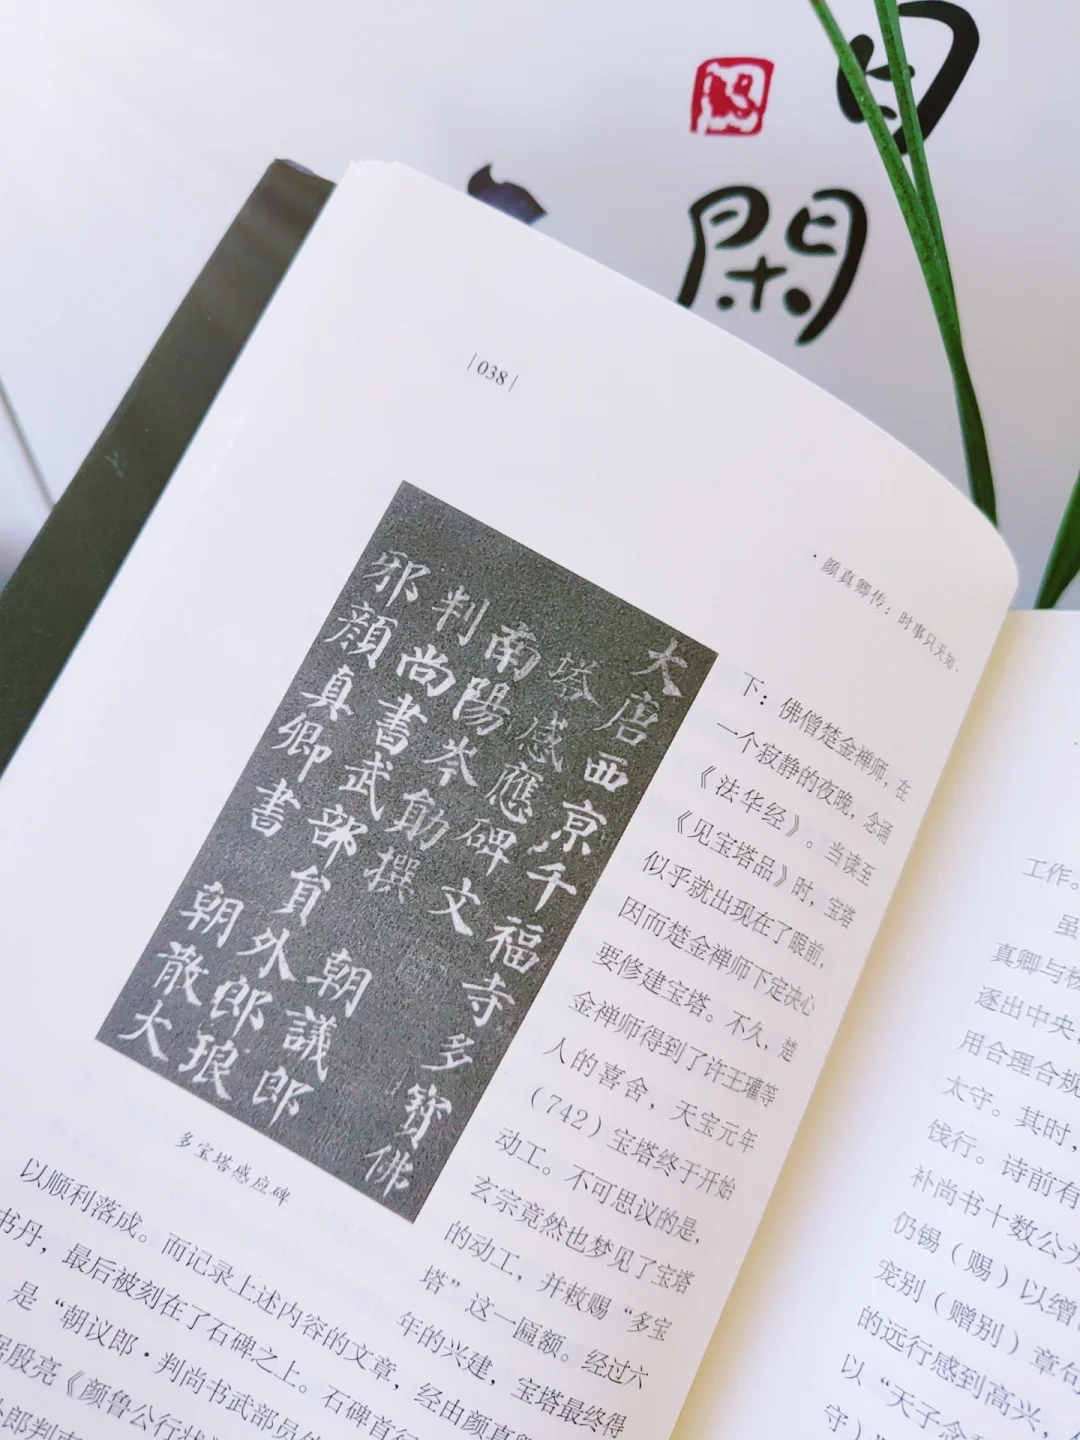 閑
|038|
·颜真卿传：时事只天知·
大唐西京千福寺多寶佛
塔感應碑文
南陽岑勛撰 朝議郎
判尚書武部員外郎琅
邪顏真卿書 朝散大
多宝塔感应碑
下：佛僧楚金禅师，在
一个寂静的夜晚，念诵
《法华经》。当读至
《见宝塔品》时，宝塔
似乎就出现在了眼前，
因而楚金禅师下定决心
要修建宝塔。不久，楚
金禅师得到了许王瓘等
人的喜舍，天宝元年
（742）宝塔终于开始
动工。不可思议的是，
玄宗竟然也梦见了宝塔
的动工，并敕赐“多宝
塔”这一匾额。经过六
年的兴建，宝塔最终得
以顺利落成。而记录上述内容的文章，经由颜真
书丹，最后被刻在了石碑之上。石碑首
是“朝议郎·判尚书武部员
殷亮《颜鲁公行状
郎判
工作。
虽
真卿与杨
逐出中央，
用合理合规
太守。其时，
饯行。诗前有
补尚书十数公为
仍锡（赐）以缯
宠别（赠别）章句
的远行感到高兴，
以“天子念
守）